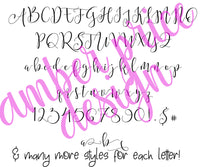 ABCDEFGHIJKLMNO
PQRSTUVWXYZ
a b c d e f g h i j k l m n o
p q r s t u v w x y z
1234567890 . , $ #
a b t
& many more styles for each letter!
amber price
design